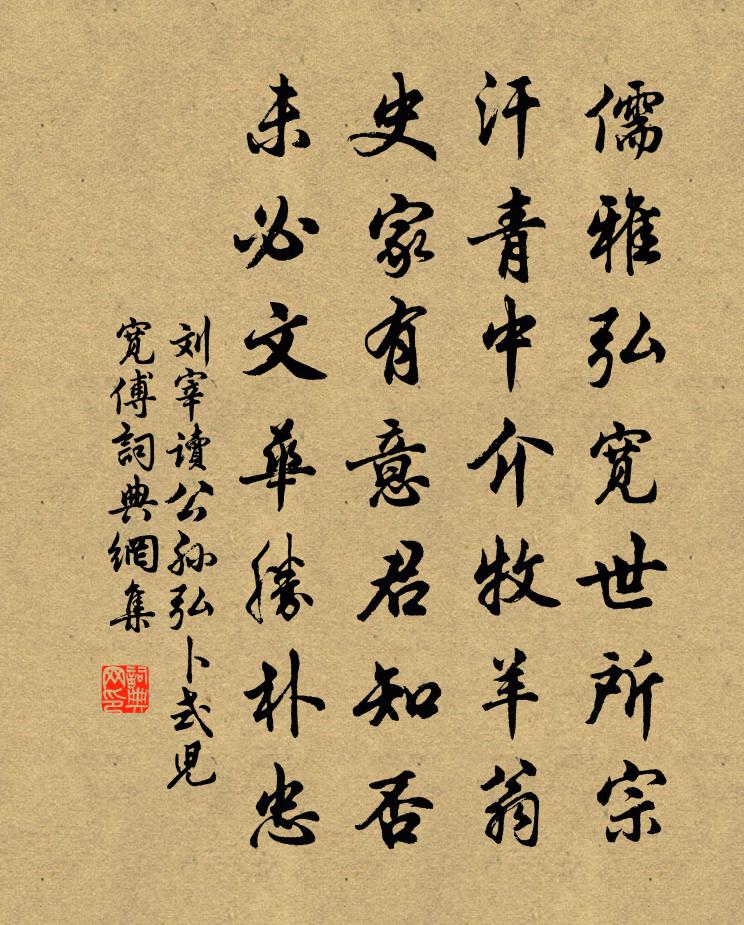 儒雅弘寛世所宗
汗青中介牧羊翁
史家有意君知否
未必文華勝朴忠
刘宰读公孙弘卜式兒
寛傅詞典網集
詞典网印